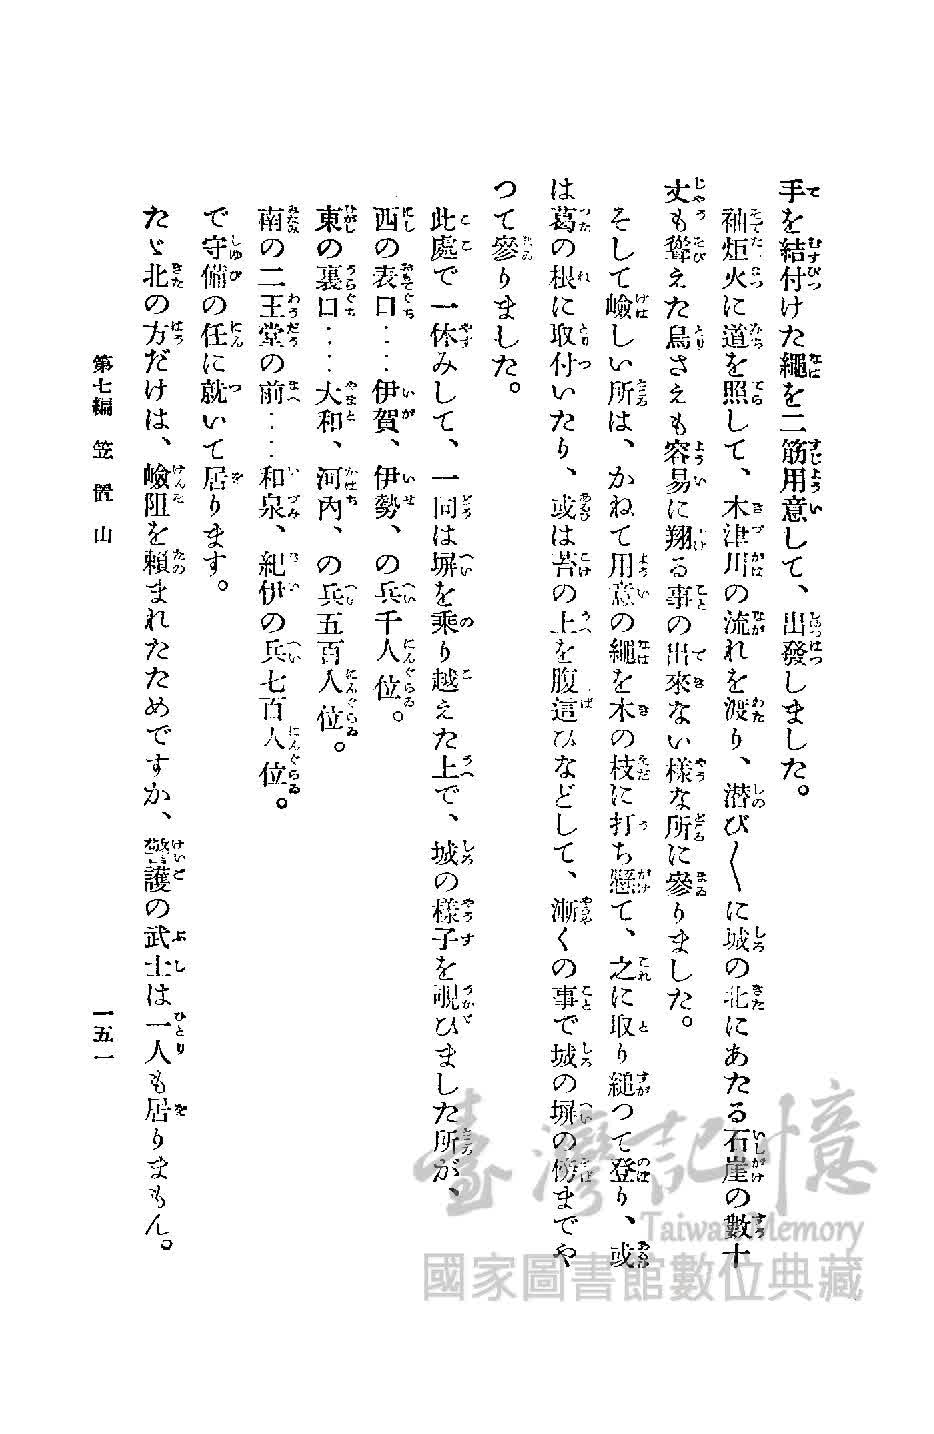 手を結付けた繩を二筋用意して、出發しました。
袖炬火に道を照して、木津川の流れを渡り、潜び〳〵に城の北にあたる石崖の數十
丈も聳えた鳥さえも容易に翔る事の出來ない樣な所に參りました。
そして嶮しい所は、かねて用意の繩を木の枝に打ち懸て、之に取り縋つて登り、或
は葛の根に取付いたり、或は苔の上を腹這ひなどして、漸くの事で城の塀の傍までや
つて參りました。
此處で一休みして、一同は塀を乘り越えた上で、城の樣子を覗ひました所が、
西の表口‥‥伊賀、伊勢、の兵千人位。
東の裏口‥‥大和、河內、の兵五百人位。
南の二王堂の前‥‥和泉、紀伊の兵七百人位。
で守備の任に就いて居ります。
たゞ北の方だけは、嶮阻を賴まれたためですか、警護の武士は一人も居りません。
第七編 笠置山
一五一
臺灣記憶
Taiwan Memory
國家圖書館數位典藏